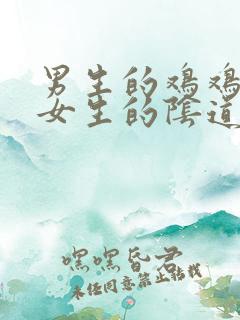 男生的鸡鸡
女生的陰道
嘿嘿昏君
未经同意禁止转载